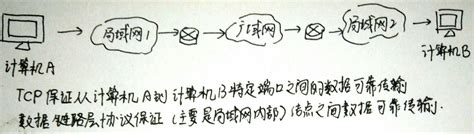 局域网1 广域网 局域网2
计算机A 计算机B
TCP保证从计算机A到计算机B特定端口之间的数据可靠传输
数据链路层协议保证(主要是局域网内部)结点之间数据可靠传输.